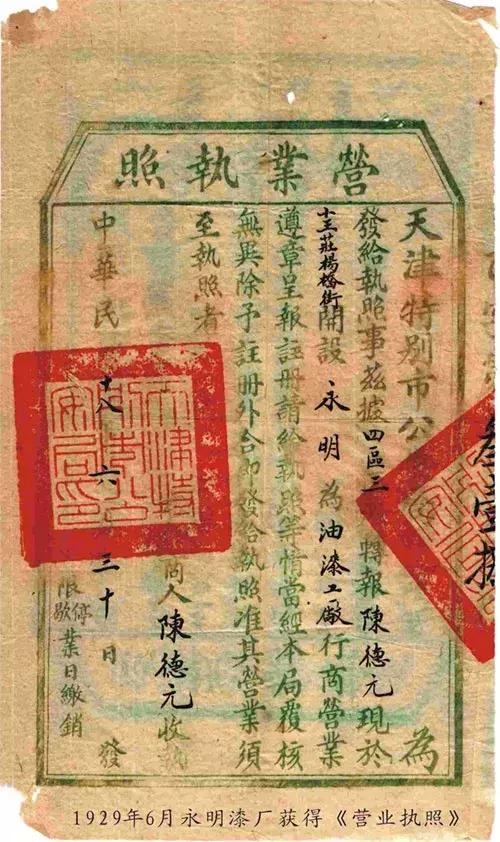 營業執照
天津特別市公 為
發給執照事茲據四區三 轉報陳德元現於
小王莊楊橋街開設永明為油漆工廠行商營業
遵章呈報註冊請給執照等情當經本局覆核
無異除予註冊外合即發給執照准其營業須
至執照者
商人陳德元收執
中華民 十八 六 三十日 發
限停歇業日繳銷
天津特別市公安局印
1929年6月永明漆厂获得《营业执照》